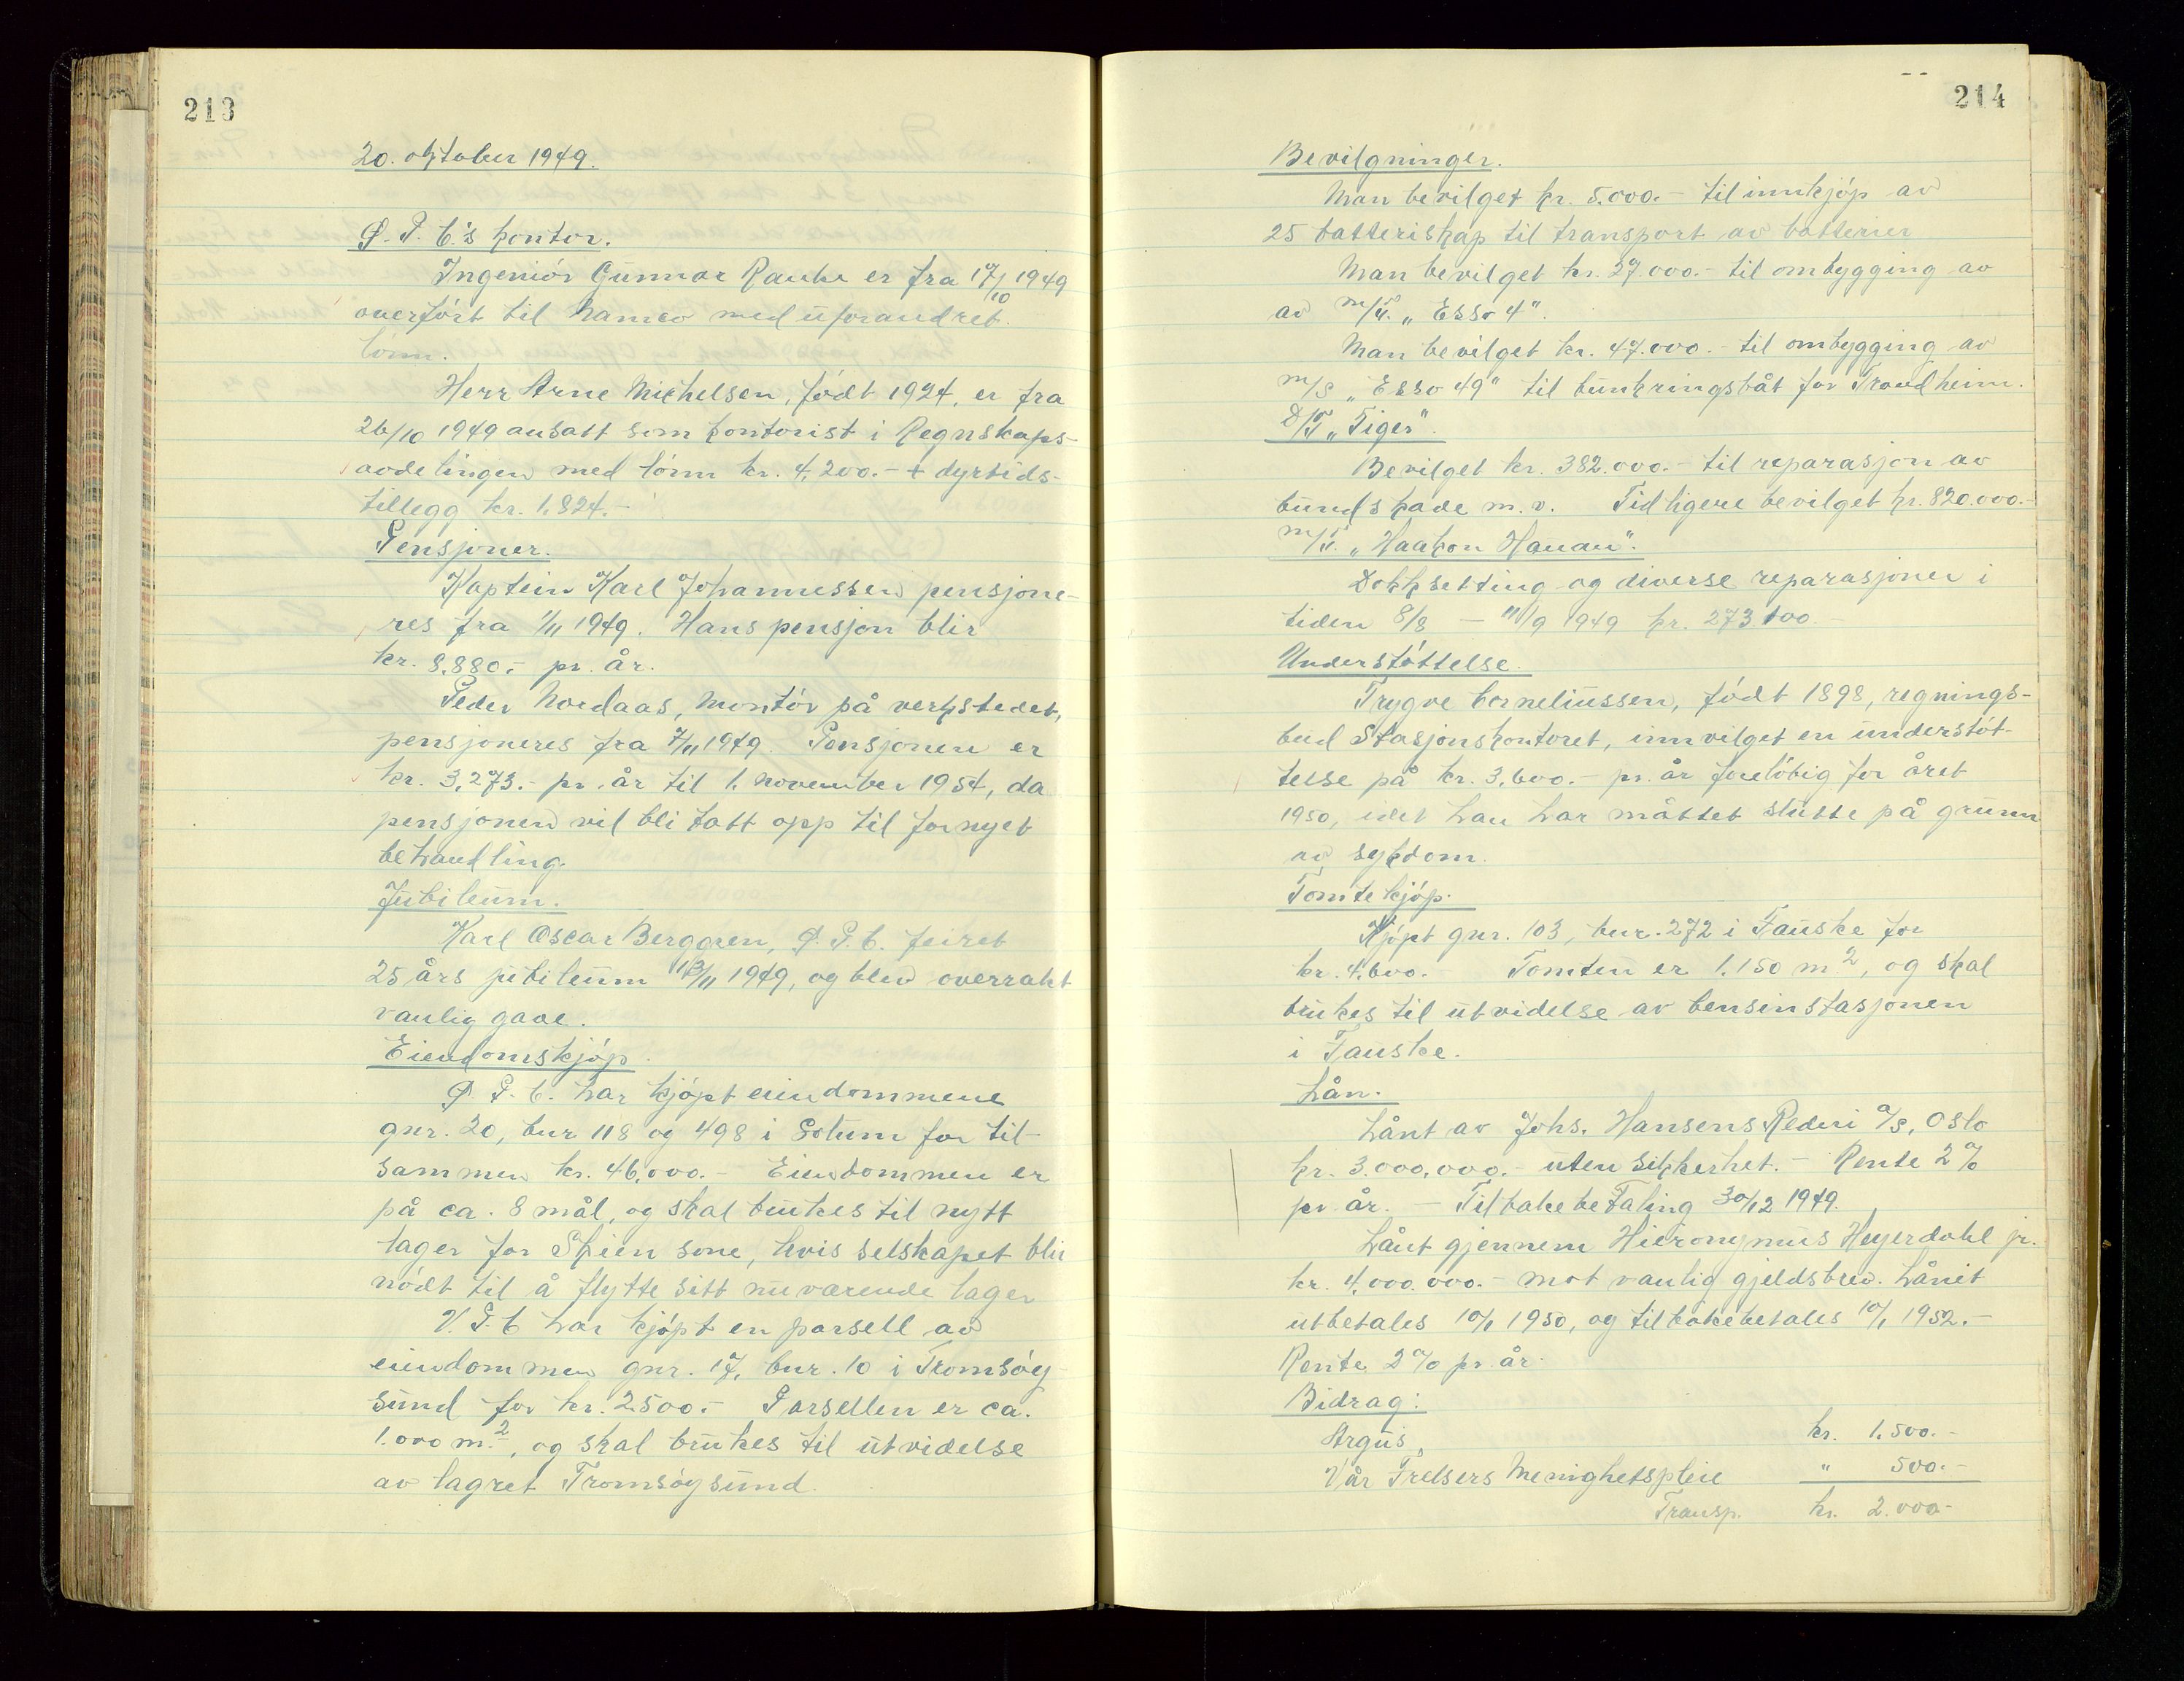 213
20. oktober 1949.
Ø. P. C.'s kontor.
Ingeniör Gunnar Rauke er fra 17/10 1949
overfört til Namco med uforandret
lönn.
Herr Arne Michelsen, födt 1924, er fra
26/10 1949 ansatt som kontorist i Regnskaps-
avdelingen med lönn kr. 4,200.- + dyrtids-
tillegg kr. 1.824.-
Pensjoner.
Kaptein Karl Johannessen pensjone-
res fra 1/11 1949. Hans pensjon blir
kr. 8.880.- pr. år.
Peder Nordaas, montör på verkstedet,
pensjoneres fra 7/11 1949. Pensjonen er
kr. 3.273.- pr. år til 1. november 1954, da
pensjonen vil bli tatt opp til fornyet
behandling.
Jubileum.
Karl Oscar Berggren, Ø. P. C. feiret
25 års jubileum 13/11 1949, og blev overrakt
vanlig gave.
Eiendomskjöp.
Ø. P. C. har kjöpt eiendommene
gnr. 20, bnr 118 og 498 i Solum for til-
sammen kr. 46,000.- Eiendommen er
på ca. 8 mål, og skal brukes til nytt
lager for Skien sone, hvis selskapet blir
nödt til å flytte sitt nuværende lager
V. P. C har kjöpt en parsell av
eiendommen gnr. 17, bnr. 10 i Tromsöy-
sund for kr. 2.500.- Parsellen er ca.
1.000 m.2, og skal brukes til utvidelse
av lagret Tromsöysund.
214
Bevilgninger.
Man bevilget kr. 5.000.- til innkjöp av
25 batteriskap til transport av batterier
Man bevilget kr. 27.000.- til ombygging av
av m/T. "Esso 4".
Man bevilget kr. 47.000.- til ombygging av
m/S "Esso 49" til bunkringsbåt for Trondheim.
D/T "Tiger".
Bevilget kr. 382.000.- til reparasjon av
bundskade m.v. Tidligere bevilget kr. 820.000.-
m/T. "Haakon Hauan".
Dokksetting og diverse reparasjoner i
tiden 8/8 - 11/9 1949 kr. 273.100.-
Understöttelse.
Trygve Corneliussen, födt 1898, regnings-
bud Stasjonskontoret, innvilget en understöt-
telse på kr. 3.600.- pr. år forelöbig for året
1950, idet han har måttet slutte på grunn
av sykdom.
Tomtekjöp.
Kjöpt gnr. 103, bnr. 272 i Fauske for
kr. 4.600.- Tomten er 1.150 m2, og skal
brukes til utvidelse av bensinstasjonen
i Fauske.
Lån.
Lånt av Johs. Hansens Rederi A/S, Oslo
kr. 3.000.000.- uten sikkerhet. - Rente 2%
pr. år. - Tilbakebetaling 30/12 1949.
Lånt gjennem Hieronymus Heyerdahl jr.
kr. 4.000.000.- mot vanlig gjeldsbrev. Lånet
utbetales 10/1 1950, og tilbakebetales 10/1 1952.-
Rente 2% pr. år.
Bidrag:
Argus, kr. 1.500.-
Vår Frelsers Menighetspleie " 500.-
Transp. kr. 2.000-